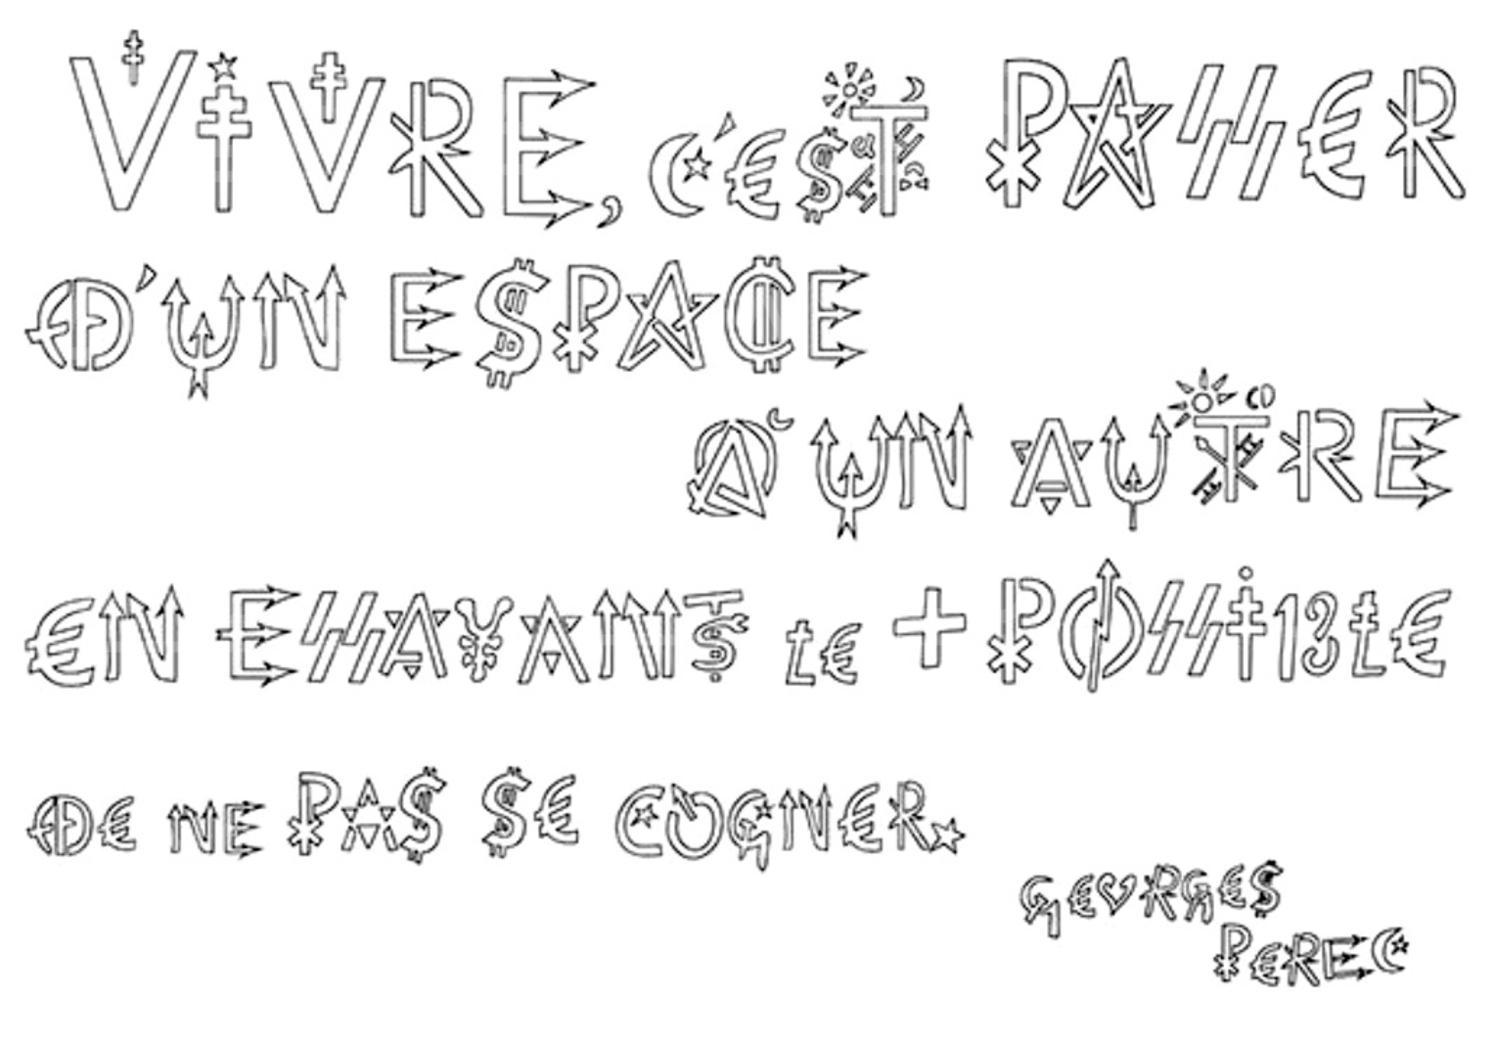 VIVRE, C'EST PASSER
D'UN ESPACE
À UN AUTRE
EN ESSAYANT LE + POSSIBLE
DE NE PAS SE COGNER.
GEORGES
PEREC